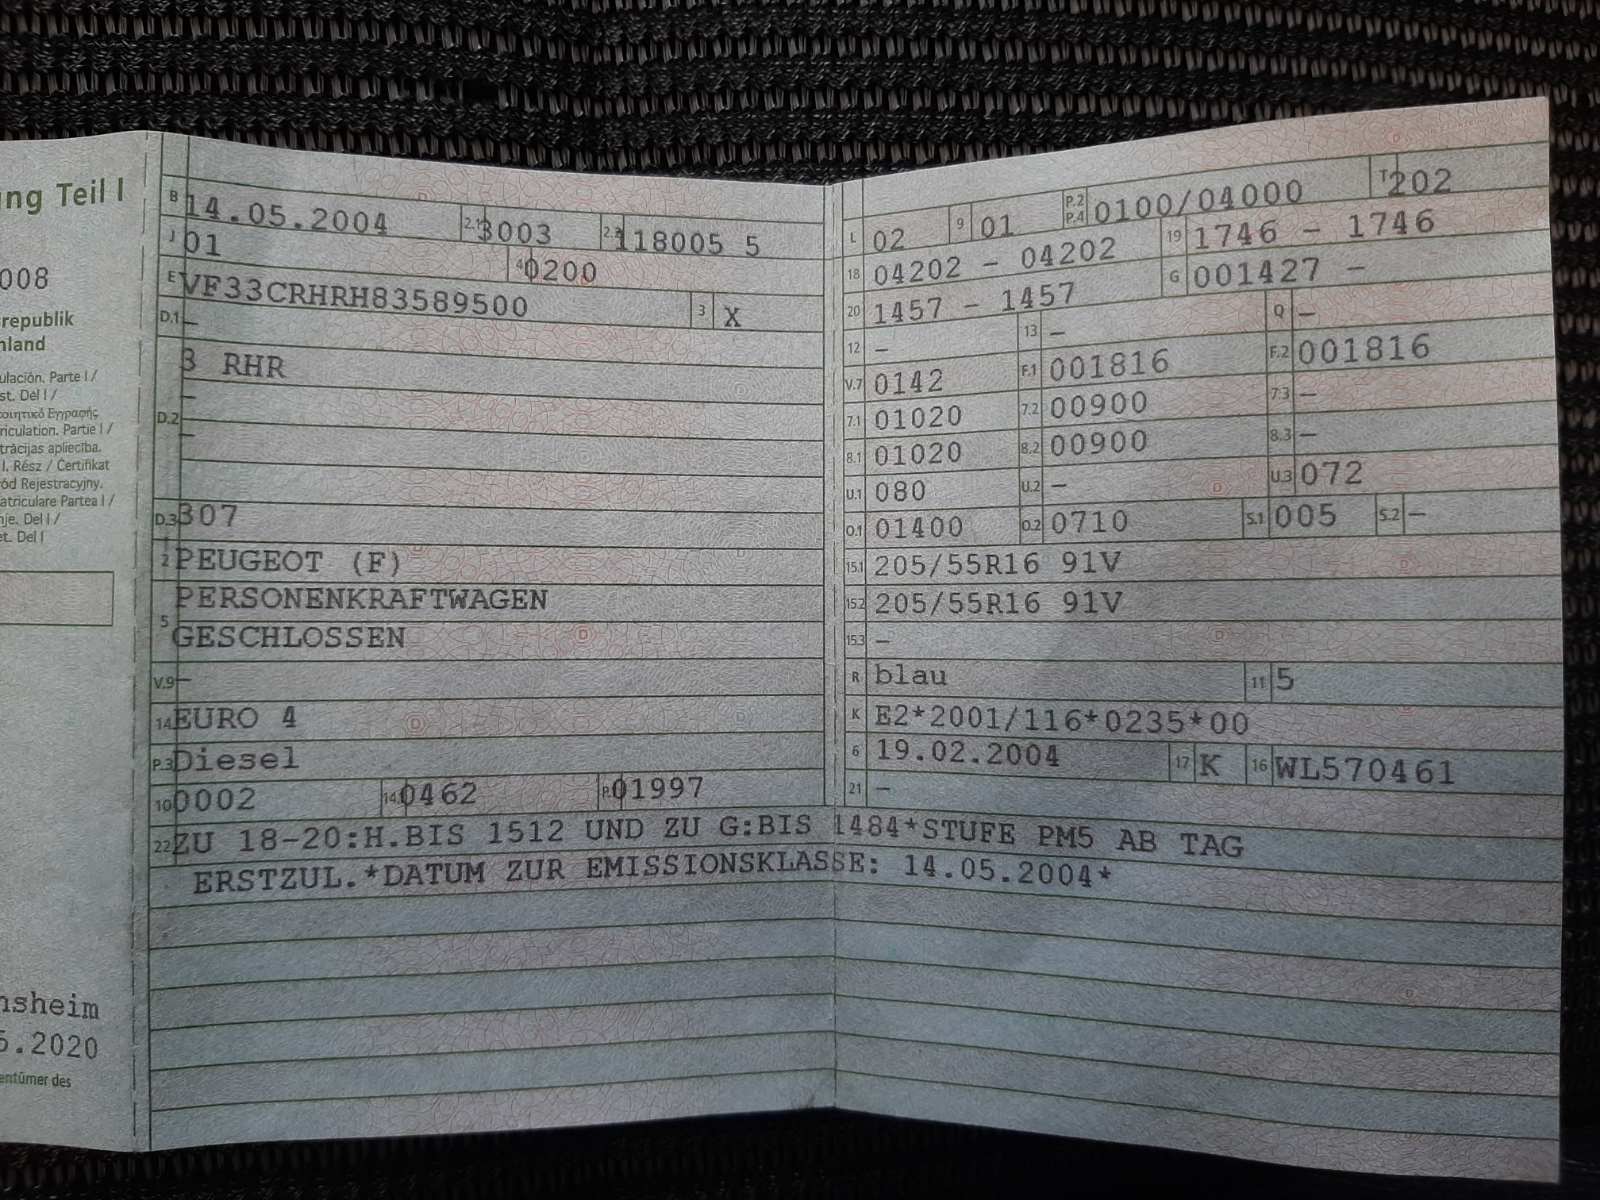 ng Teil I
008
republik
nland
ulación. Parte I /
st. Del I /
riculation. Partie I /
trācijas apliecība.
I. Rész / Ċertifikat
ód Rejestracyjny.
atriculare Partea I /
nje. Del I /
et. Del I
nsheim
5.2020
entümer des
B 14.05.2004 2.1 3003 2.2 118005 5
J 01 4 0200
E VF33CRHRH83589500 3 X
D.1 –
3 RHR
–
D.2 –
D.3 307
2 PEUGEOT (F)
5 PERSONENKRAFTWAGEN
GESCHLOSSEN
V.9 –
14 EURO 4
P.3 Diesel
10 0002 14.1 0462 P.1 01997
L 02 9 01 P.2 P.4 0100/04000 T 202
18 04202 – 04202 19 1746 – 1746
20 1457 – 1457 G 001427 –
12 – 13 – Q –
V.7 0142 F.1 001816 F.2 001816
7.1 01020 7.2 00900 7.3 –
8.1 01020 8.2 00900 8.3 –
U.1 080 U.2 – U.3 072
O.1 01400 O.2 0710 S.1 005 S.2 –
15.1 205/55R16 91V
15.2 205/55R16 91V
15.3 –
R blau 11 5
K E2*2001/116*0235*00
6 19.02.2004 17 K 16 WL570461
21 –
22 ZU 18-20:H.BIS 1512 UND ZU G:BIS 1484*STUFE PM5 AB TAG
ERSTZUL.*DATUM ZUR EMISSIONSKLASSE: 14.05.2004*